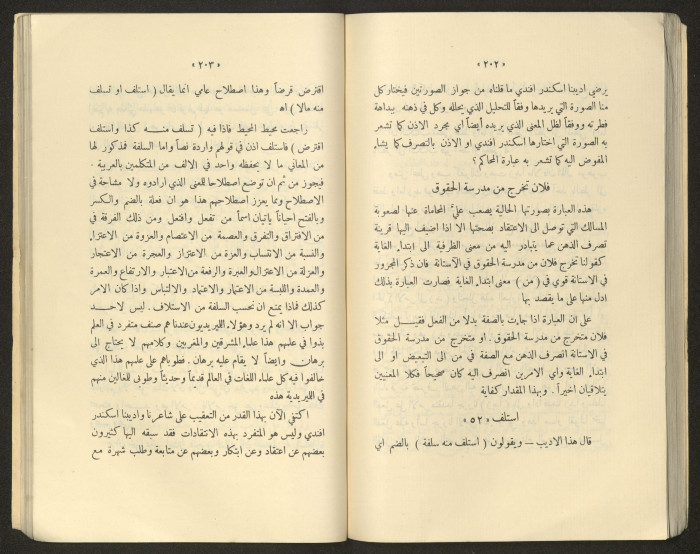 «٢٠٢»
يرضى اديبنا اسكندر افندي ما قلناه من جواز الصورتين فيختار كل
منا الصورة التي يريدها وفقاً للتحليل الذي يحلله وكل في ذهنه ببداهة
فطرته ووفقاً لظل المعنى الذي يريده أيضاً أي مجرد الاذن كما تشعر
به الصورة التي اختارها اسكندر افندي او الاذن بالتصرف كما يشاء
المفوض اليه كما تشعر به عبارة المحاكم؟
فلان تخرج من مدرسة الحقوق
هذه العبارة بصورتها الحالية يصعب عليَّ المحاماة عنها لصعوبة
المسالك التي توصل الى الاعتقاد بصحتها الا اذا اضيف اليها قرينة
تصرف الذهن عما يتبادر اليه من معنى الظرفية الى ابتداء الغاية
كقولنا تخرج فلان من مدرسة الحقوق في الآستانة فان ذكر المجرور
في الاستانة قوى في (من) معنى ابتداء الغاية فصارت العبارة بذلك
ادل منها على ما يقصد بها
على ان العبارة اذا جاءت بالصفة بدلا من الفعل فقيل مثلا
فلان متخرج من مدرسة الحقوق. او متخرج من مدرسة الحقوق
في الاستانة انصرف الذهن مع الصفة في من الى التبعيض او الى
ابتداء الغاية واي الامرين انصرف اليه كان صحيحاً فكلا المعنيين
يتلاقيان اخيراً. وبهذا المقدار كفاية
استلف «٥٢»
قال هذا الاديب — ويقولون (استلف منه سلفة) بالضم اي
«٢٠٣»
اقترض قرضاً وهذا اصطلاح عامي انما يقال (استلف او تسلف
منه مالا) اه
راجعت محيط المحيط فاذا فيه (تسلف منه كذا واستلف
اقترض) فاستلف اذن في قولهم واردة نصاً واما السلفة فمذكور لها
من المعاني ما لا يحفظه واحد في الالف من المتكلمين بالعربية.
فيجوز من ثم ان توضع اصطلاحا للمعنى الذي ارادوه ولا مشاحة في
الاصطلاح ومما يعزز اصطلاحهم هذا هو ان فعلة بالضم والكسر
وبالفتح احياناً ياتيان اسماً من تفعل وافتعل ومن ذلك الفرقة في
من الافتراق والتفرق والعصمة من الاعتصام والعزوة من الاعتزاء
والنسبة من الانتساب والعزة من الاعتزاز والعجرة من الاعتجار
والعزلة من الاعتزال والعبرة والرفعة من الاعتبار والارتفاع والعمرة
والعمدة واللبسة من الاعتمار والاعتماد والالتباس واذا كان الامر
كذلك فماذا يمنع ان نحسب السلفة من الاستلاف. ليس لاحد
جواب الا انه لم يرد وهؤلاء الليريديون عندنا هم صنف متفرد في العلم
بذوا في علمهم هذا علماء المشرقين والمغربين وكلامهم لا يحتاج الى
برهان وايضاً لا يقام عليه برهان. فطوباهم على علمهم هذا الذي
خالفوا فيه كل علماء اللغات في العالم قديماً وحديثاً وطوبى للغالين منهم
في الليريدية هذه
اكتفي الآن بهذا القدر من التعقيب على شاعرنا واديبنا اسكندر
افندي وليس هو المتفرد بهذه الانتقادات فقد سبقه اليها كثيرون
بعضهم عن اعتقاد وعن ابتكار وبعضهم عن متابعة وطلب شهرة مع